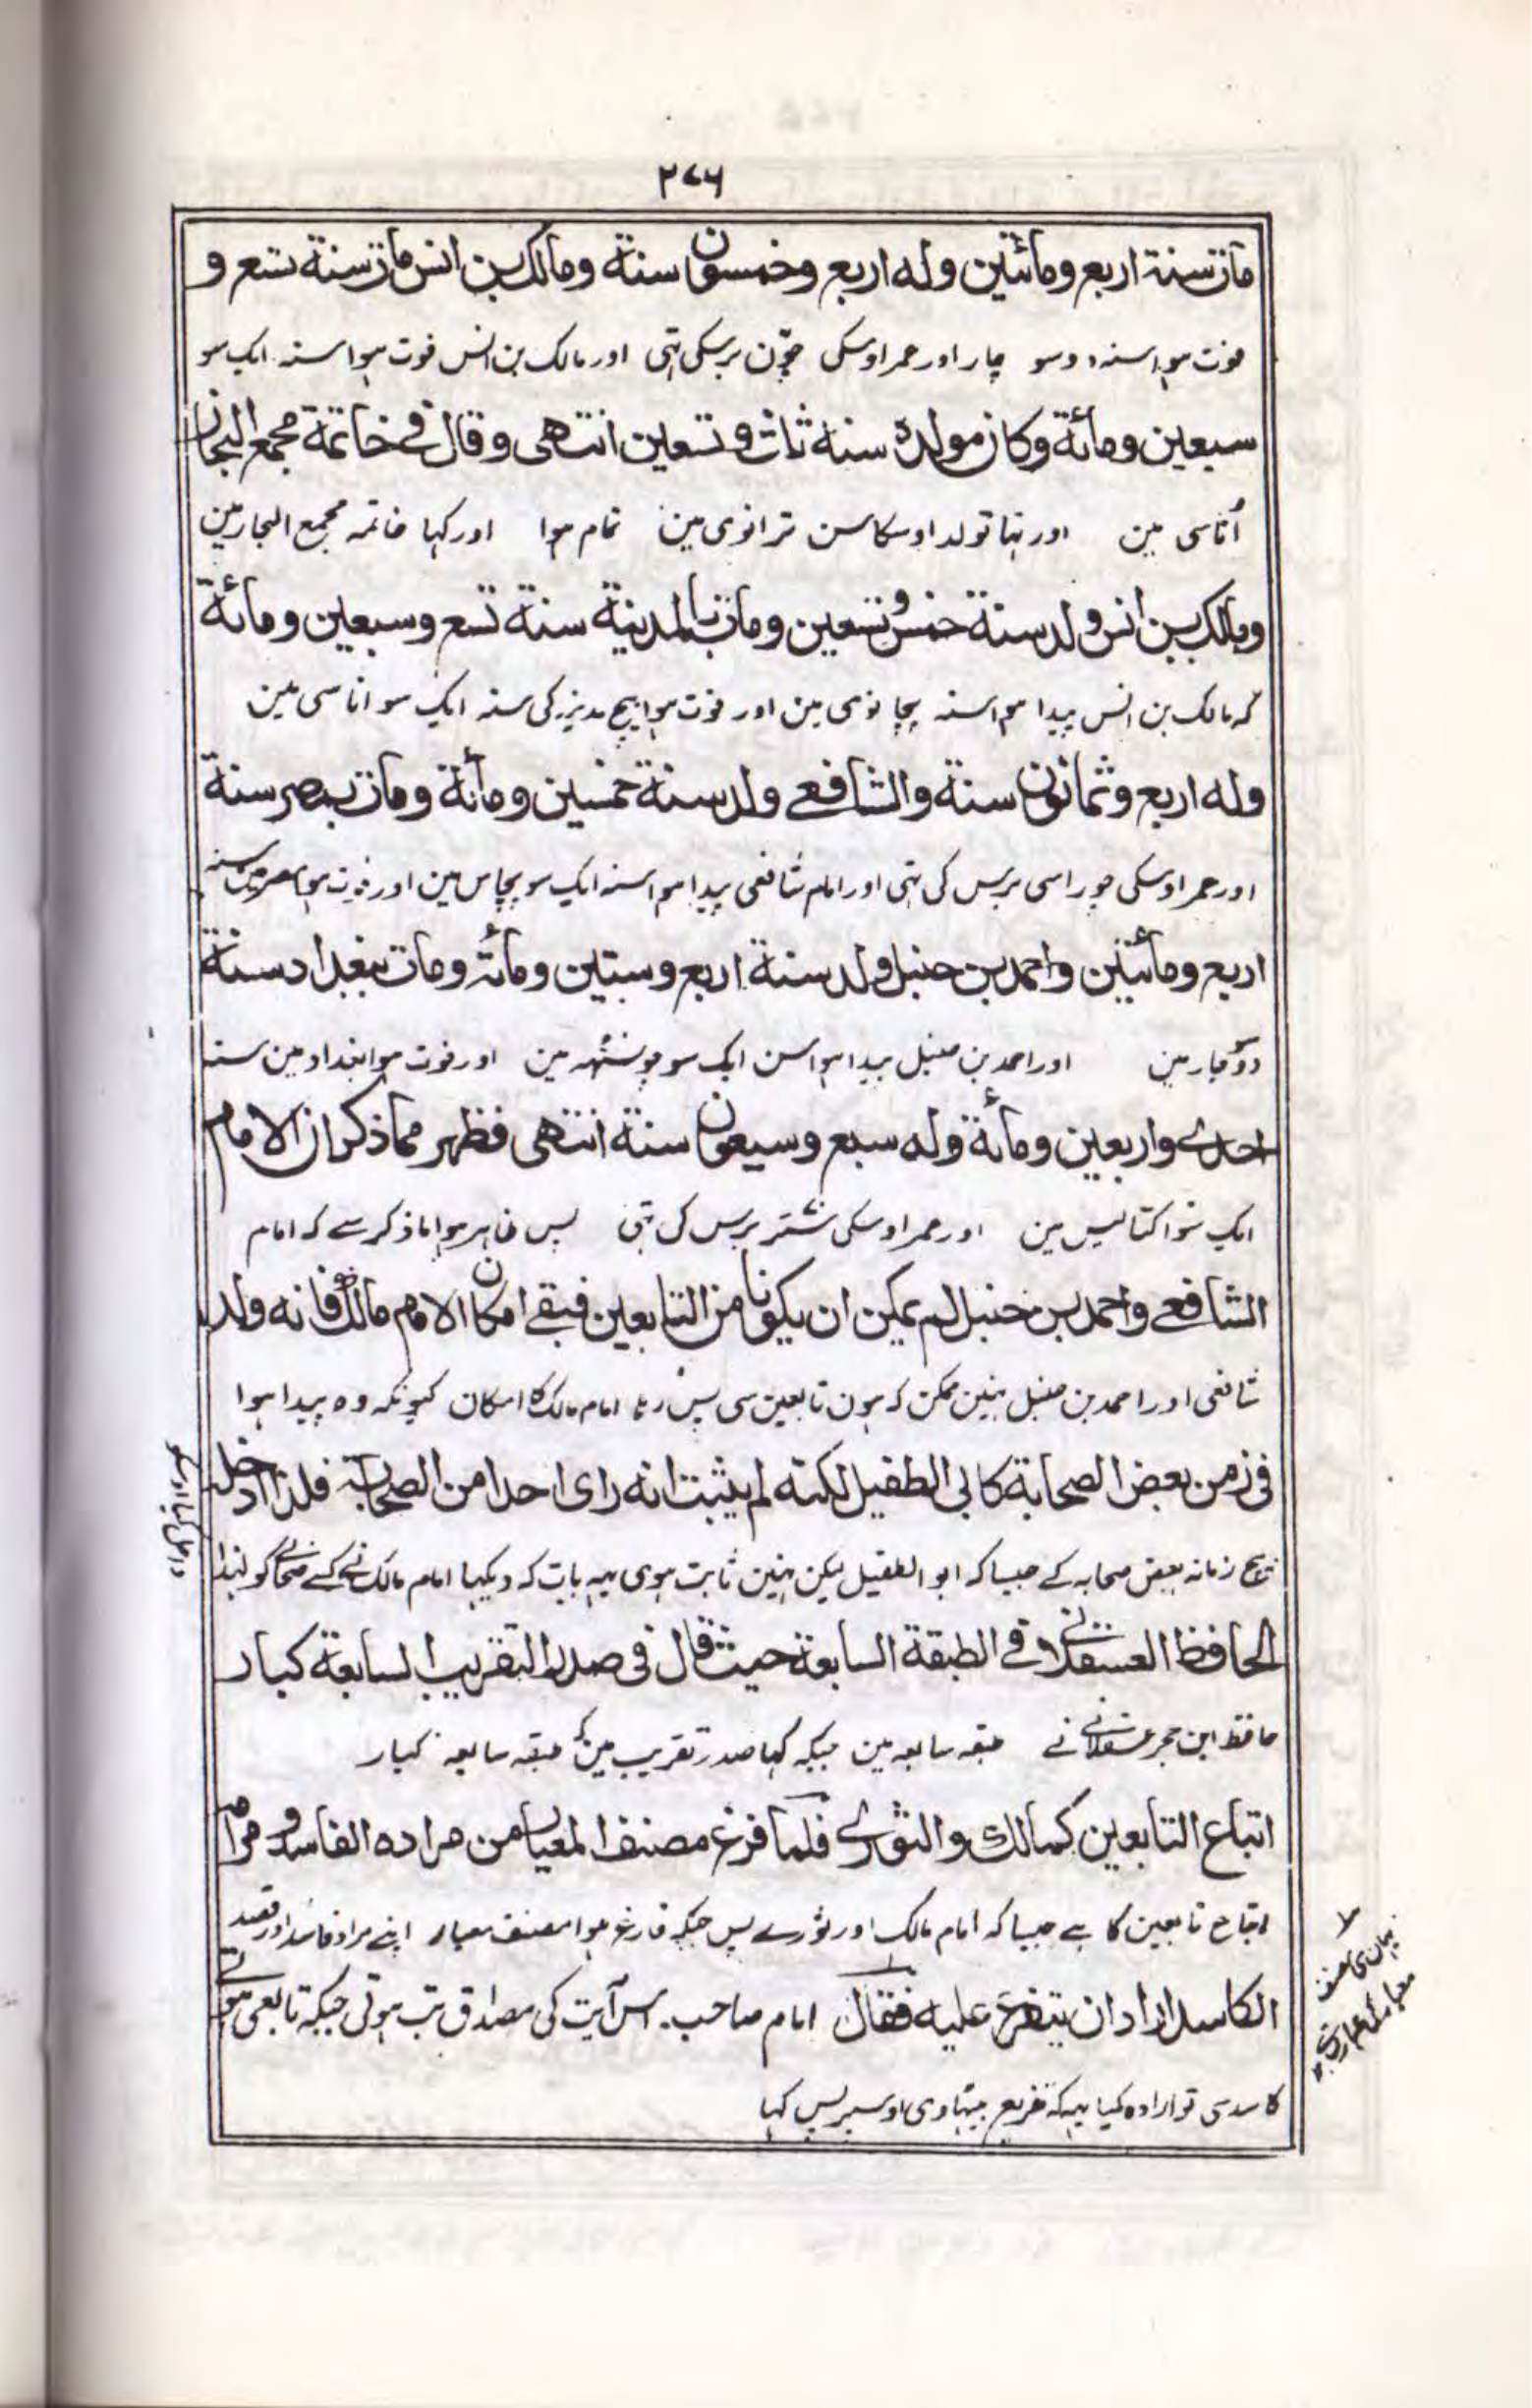 ۲۷۶
مات سنة اربع ومائتین وله اربع وخمسون سنة ومالک بن انس مات سنة تسع و
فوت ہوا سنہ دوسو چار اور عمر اوسکی چوّن برسکی تہی اور مالک بن انس فوت ہوا سنہ ایک سو
سبعین ومائة وکان مولده سنة ثلث وتسعین انتهی وقال فی خاتمة مجمع البحار
اُناسی مین اور تہا تولد اوسکا سن ترانوی مین تمام ہوا اور کہا خاتمہ مجمع البحار مین
ومالک بن انس ولد سنة خمس وتسعین ومات بالمدینة سنة تسع وسبعین ومائة
کہ مالک بن انس پیدا ہوا سنہ پچانوی مین اور فوت ہوا بیچ مدینہ کی سنہ ایک سو اناسی مین
وله اربع وثمانون سنة والشافعے ولد سنة خمسین ومائة ومات بمصر سنة
اور عمر اوسکی چوراسی برس کی تہی اور امام شافعی پیدا ہوا سنہ ایک سو پچاس مین اور فوت ہوا مصر مین سنہ
اربع ومائتین واحمد بن حنبل ولد سنة اربع وستین ومائة ومات ببغداد سنة
دو سو چار مین اور احمد بن حنبل پیدا ہوا سن ایک سو چونسٹھہ مین اور فوت ہوا بغداد مین سنہ
احدے واربعین ومائة وله سبع وسبعون سنة انتهی فظهر مما ذکر ان الامام
ایک سو اکتالیس مین اور عمر اوسکی ستتر برس کی تہی پس ظاہر ہوا ماذکر سے کہ امام
الشافعے واحمد بن حنبل لم یمکن ان یکونا من التابعین فبقے امکان الامام مالک فانه ولد
شافعی اور احمد بن حنبل نہین ممکن کہ ہون تابعین سی پس رہا امام مالک کا امکان کیونکہ وہ پیدا ہوا
فی زمن بعض الصحابة کابی الطفیل لکنه لم یثبت انه رای احدا من الصحابة فلذا ادخل
بیچ زمانہ بعض صحابہ کے جیسا کہ ابو الطفیل لیکن نہین ثابت ہوی یہہ بات کہ دیکہا امام مالک نے کسے صحابی کو لہذا
داخل کیا اوسکو
الحافظ العسقلانی فے الطبقة السابعة حیث قال فی صدر التقریب السابعة کبار
حافظ ابن حجر عسقلانی نے طبقہ سابعہ مین جبکہ کہا صدر تقریب مین کہ طبقہ سابعہ کبار
اتباع التابعین کمالک والثورے فلما فرغ مصنف المعیار من مراده الفاسد ومرام
اتباع تابعین کا ہے جیسا کہ امام مالک اور ثورے پس جبکہ فارغ ہوا مصنف معیار اپنے مراد فاسد اور قصد
الکاسد اراد ان یتفرع علیه فقال امام صاحب اس آیت کی مصداق تب ہوتی جبکہ تابعی ہوتے
کاسدسی تو ارادہ کیا یہہ کہ تفریع اوسپر پس کہا